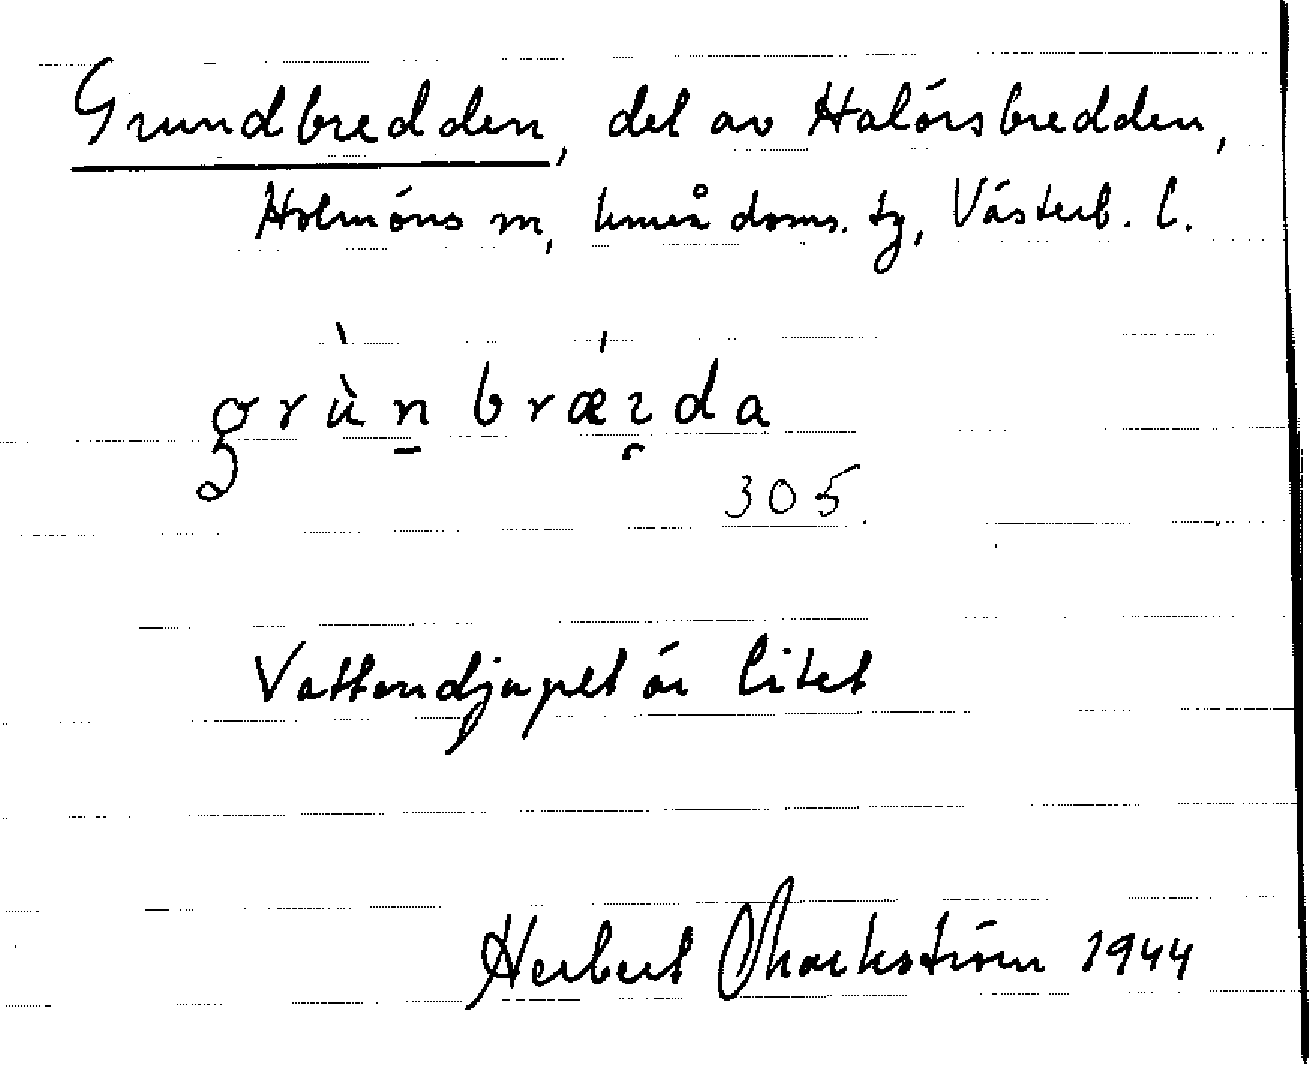 Grundbredden, del av Halörsbredden,
Holmöns sn, Umeå doms. tg, Västerb. l.
grùn bræɪda
305
Vattendjupet är litet
Herbert 1944